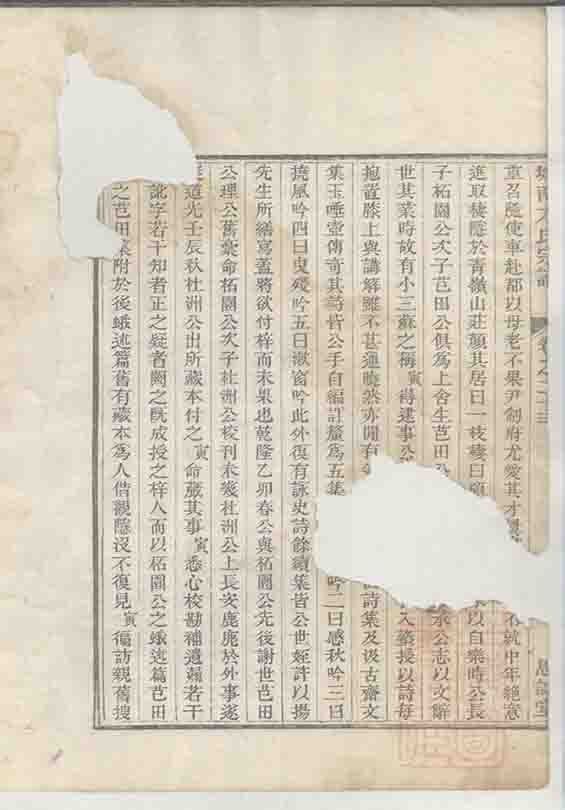 城南方氏宗譜 卷之二十三
重召隨使車赴都以母老不果尹制府尤愛其才 不就中年絕意
進取棲隱於青嶺山莊顏其居曰一枝棲曰 以自樂時公長
子柘園公次子芑田公俱為上舍生芑田公 承公志以文辭
世其業時故有小三蘇之稱寅得逮事公 入塾授以詩每
抱置膝上與講解雖不甚通曉然亦閒有 詩集及汲古齋文
集玉唾壺傳奇其詩皆公手自編訂釐為五集 吟二曰感秋吟三曰
撓風吟四曰曳殘吟五曰 窗吟此外復有詠史詩餘續集皆公世姪許以揚
先生所繕寫蓋將欲付梓而未果也乾隆乙卯春公與柘園公先後謝世芑田
公理公舊稾命柘園公次子杜洲公校刊未幾杜洲公上長安鹿鹿於外事遂
道光壬辰秋杜洲公出所藏本付之寅命蕆其事寅悉心校勘補遺漏若干
訛字若干知者正之疑者闕之旣成授之梓人而以柘園公之蛾述篇芑田
之芑田 附於後蛾述篇舊有藏本為人借觀隱沒不復見寅徧訪親舊搜